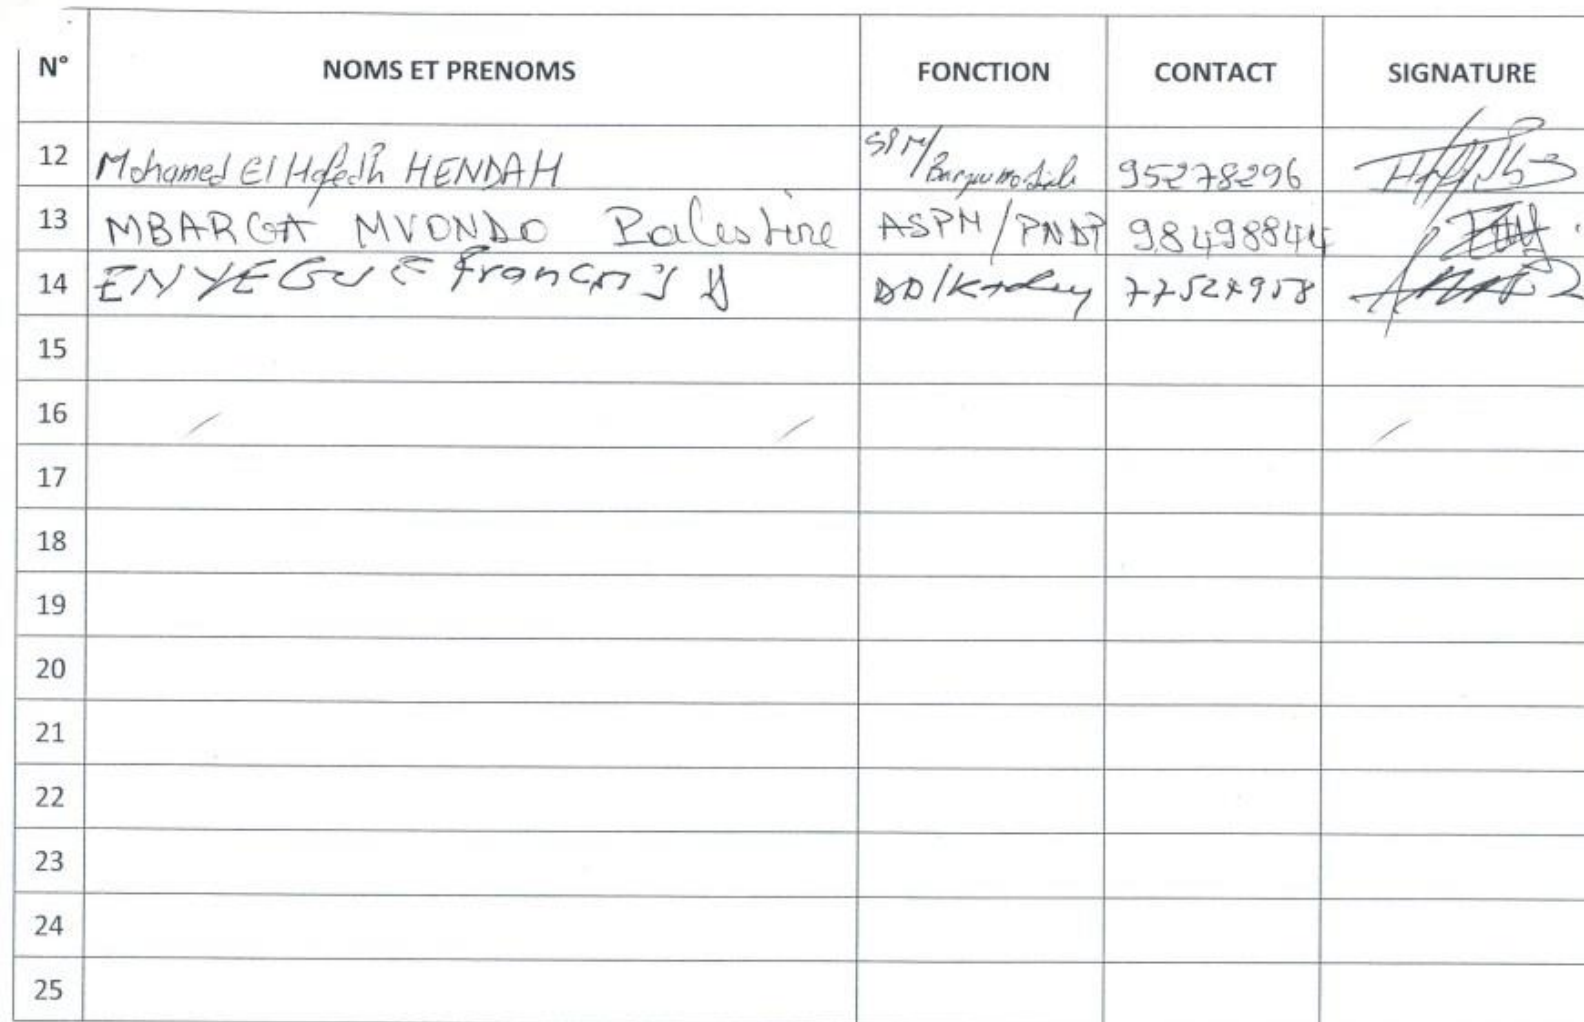 N° NOMS ET PRENOMS FONCTION CONTACT SIGNATURE
12 Mohamed El Hafedh HENDAH SPM/Banque mondiale 95278296
13 MBARGA MVONDO Palestine ASPM/PNDP 98498844
14 ENYEGUE Francis DD/ 77524958
15
16
17
18
19
20
21
22
23
24
25